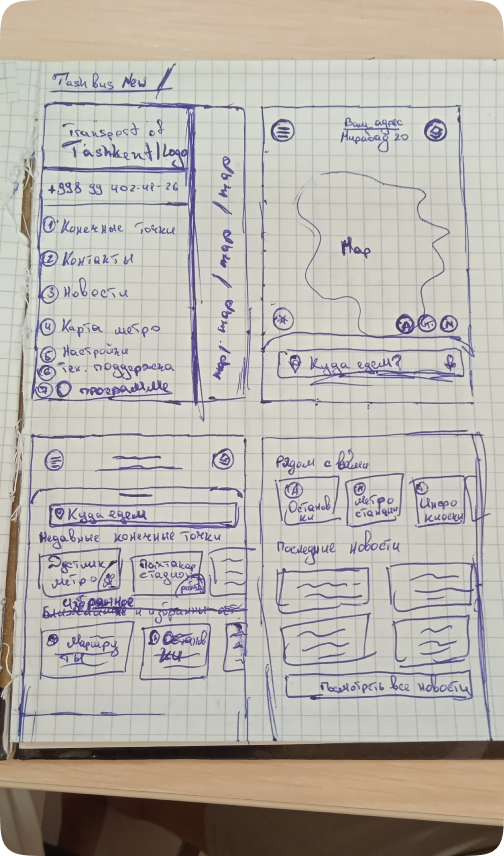 TashBus New
Transport of
Tashkent/Logo
+998 99 402-41-26
1 Конечные точки
2 Контакты
3 Новости
4 Карта метро
5 Настройки
6 Тех. поддержка
7 О программе
map / map / map / map
Ваш адрес
Мирабад 20
Map
M
Куда едем?
Куда едем
Недавные конечные точки
Дустлик
метро
Пахтакор
стадион
избранное
и избранные
Маршру
ты
Останов
ки
Рядом с вами
Останов
ки
Метро
станции
Инфо
киоски
Последние новости
Посмотреть все новости